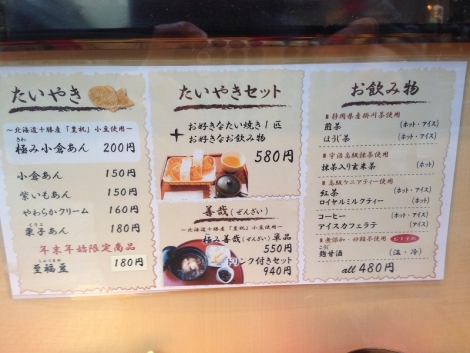 たいやき
~北海道十勝産「豊祝」小豆使用~
きわ
極み小倉あん 200円
小倉あん 150円
紫いもあん 150円
やわらかクリーム 160円
栗子あん 180円
年末年始限定商品
至福豆 180円
たいやきセット
お好きなたい焼き1匹
+
お好きなお飲み物
580円
善哉(ぜんざい)
~北海道十勝産「豊祝」小豆使用~
極み善哉(ぜんざい)単品
550円
ドリンク付きセット
940円
お飲み物
静岡県産掛川茶使用
煎茶 (ホット・アイス)
ほうじ茶 (ホット・アイス)
宇治高級抹茶使用
抹茶入り玄米茶 (ホット)
高級ケニアティー使用
紅茶 (ホット・アイス)
ロイヤルミルクティー (ホット)
コーヒー (ホット・アイス)
アイスカフェラテ (アイス)
無添加・砂糖不使用
おすすめ
麹甘酒 (温・冷)
all 480円